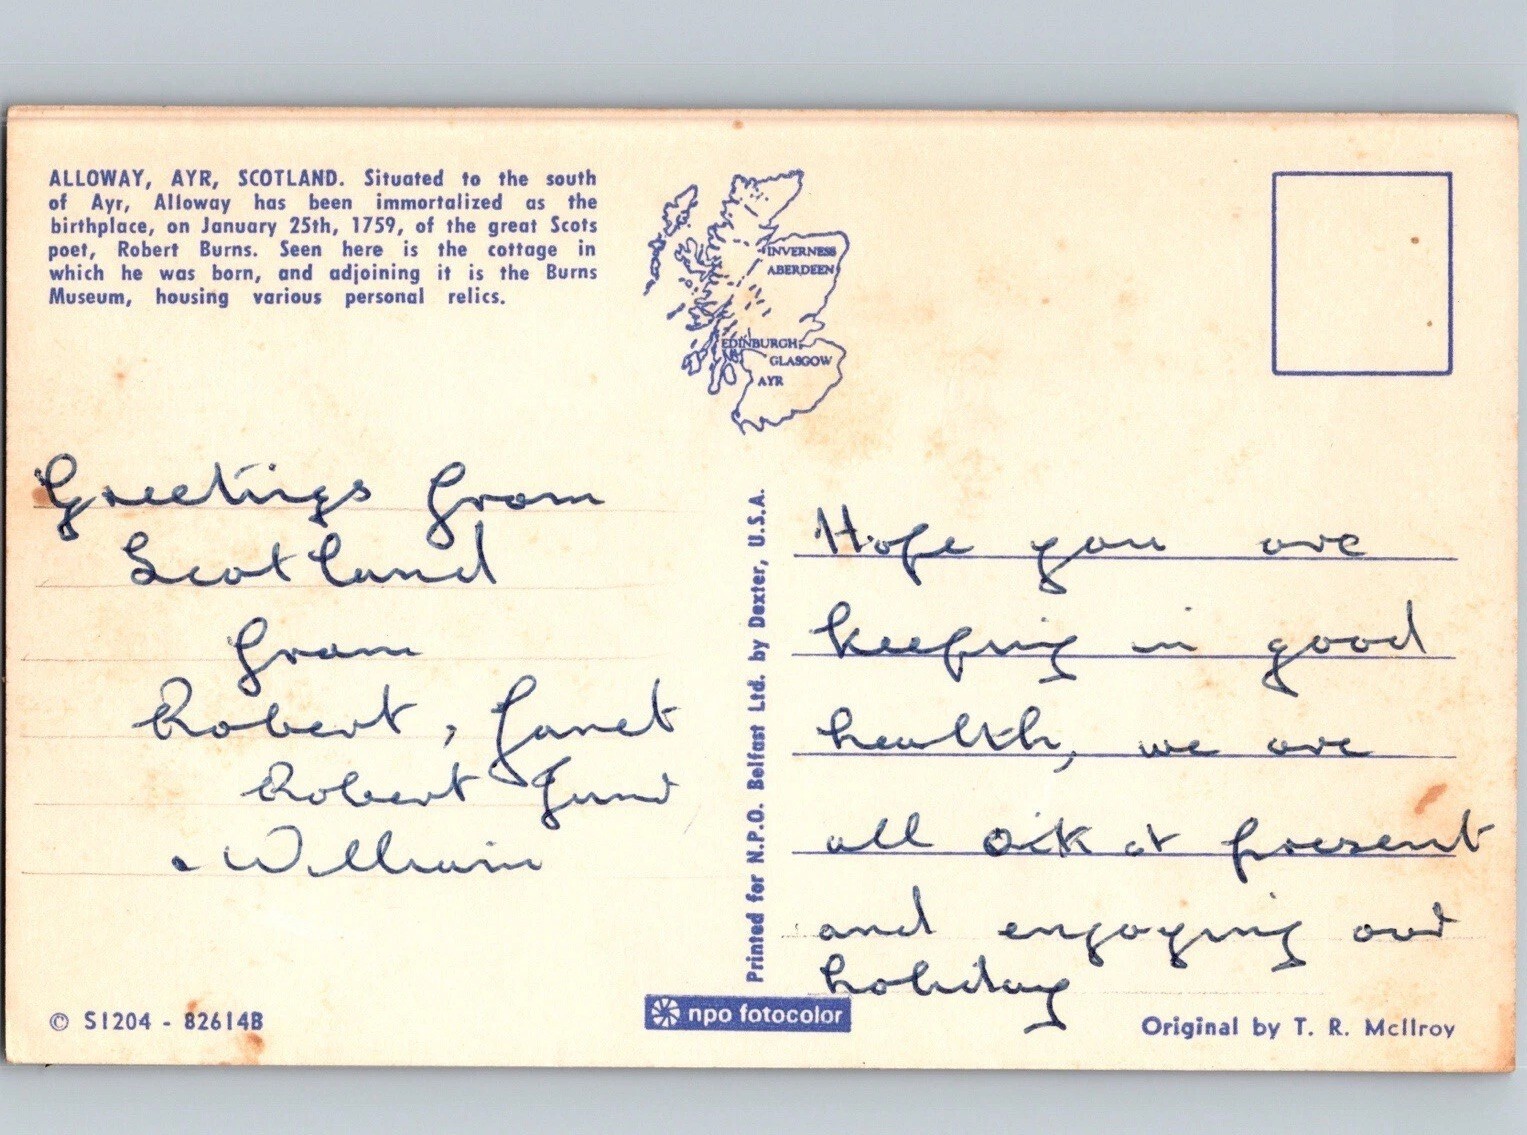 ALLOWAY, AYR, SCOTLAND. Situated to the south
of Ayr, Alloway has been immortalized as the
birthplace, on January 25th, 1759, of the great Scots
poet, Robert Burns. Seen here is the cottage in
which he was born, and adjoining it is the Burns
Museum, housing various personal relics.
INVERNESS
ABERDEEN
EDINBURGH
GLASGOW
AYR
Greetings from
Scotland
from
Robert, Janet
Robert Junr
& William
Printed for N.P.O. Belfast Ltd. by Dexter, U.S.A.
Hope you are
keeping in good
health, we are
all O.K at present
and enjoying our
holiday
© S1204 - 82614B
npo fotocolor
Original by T. R. McIlroy